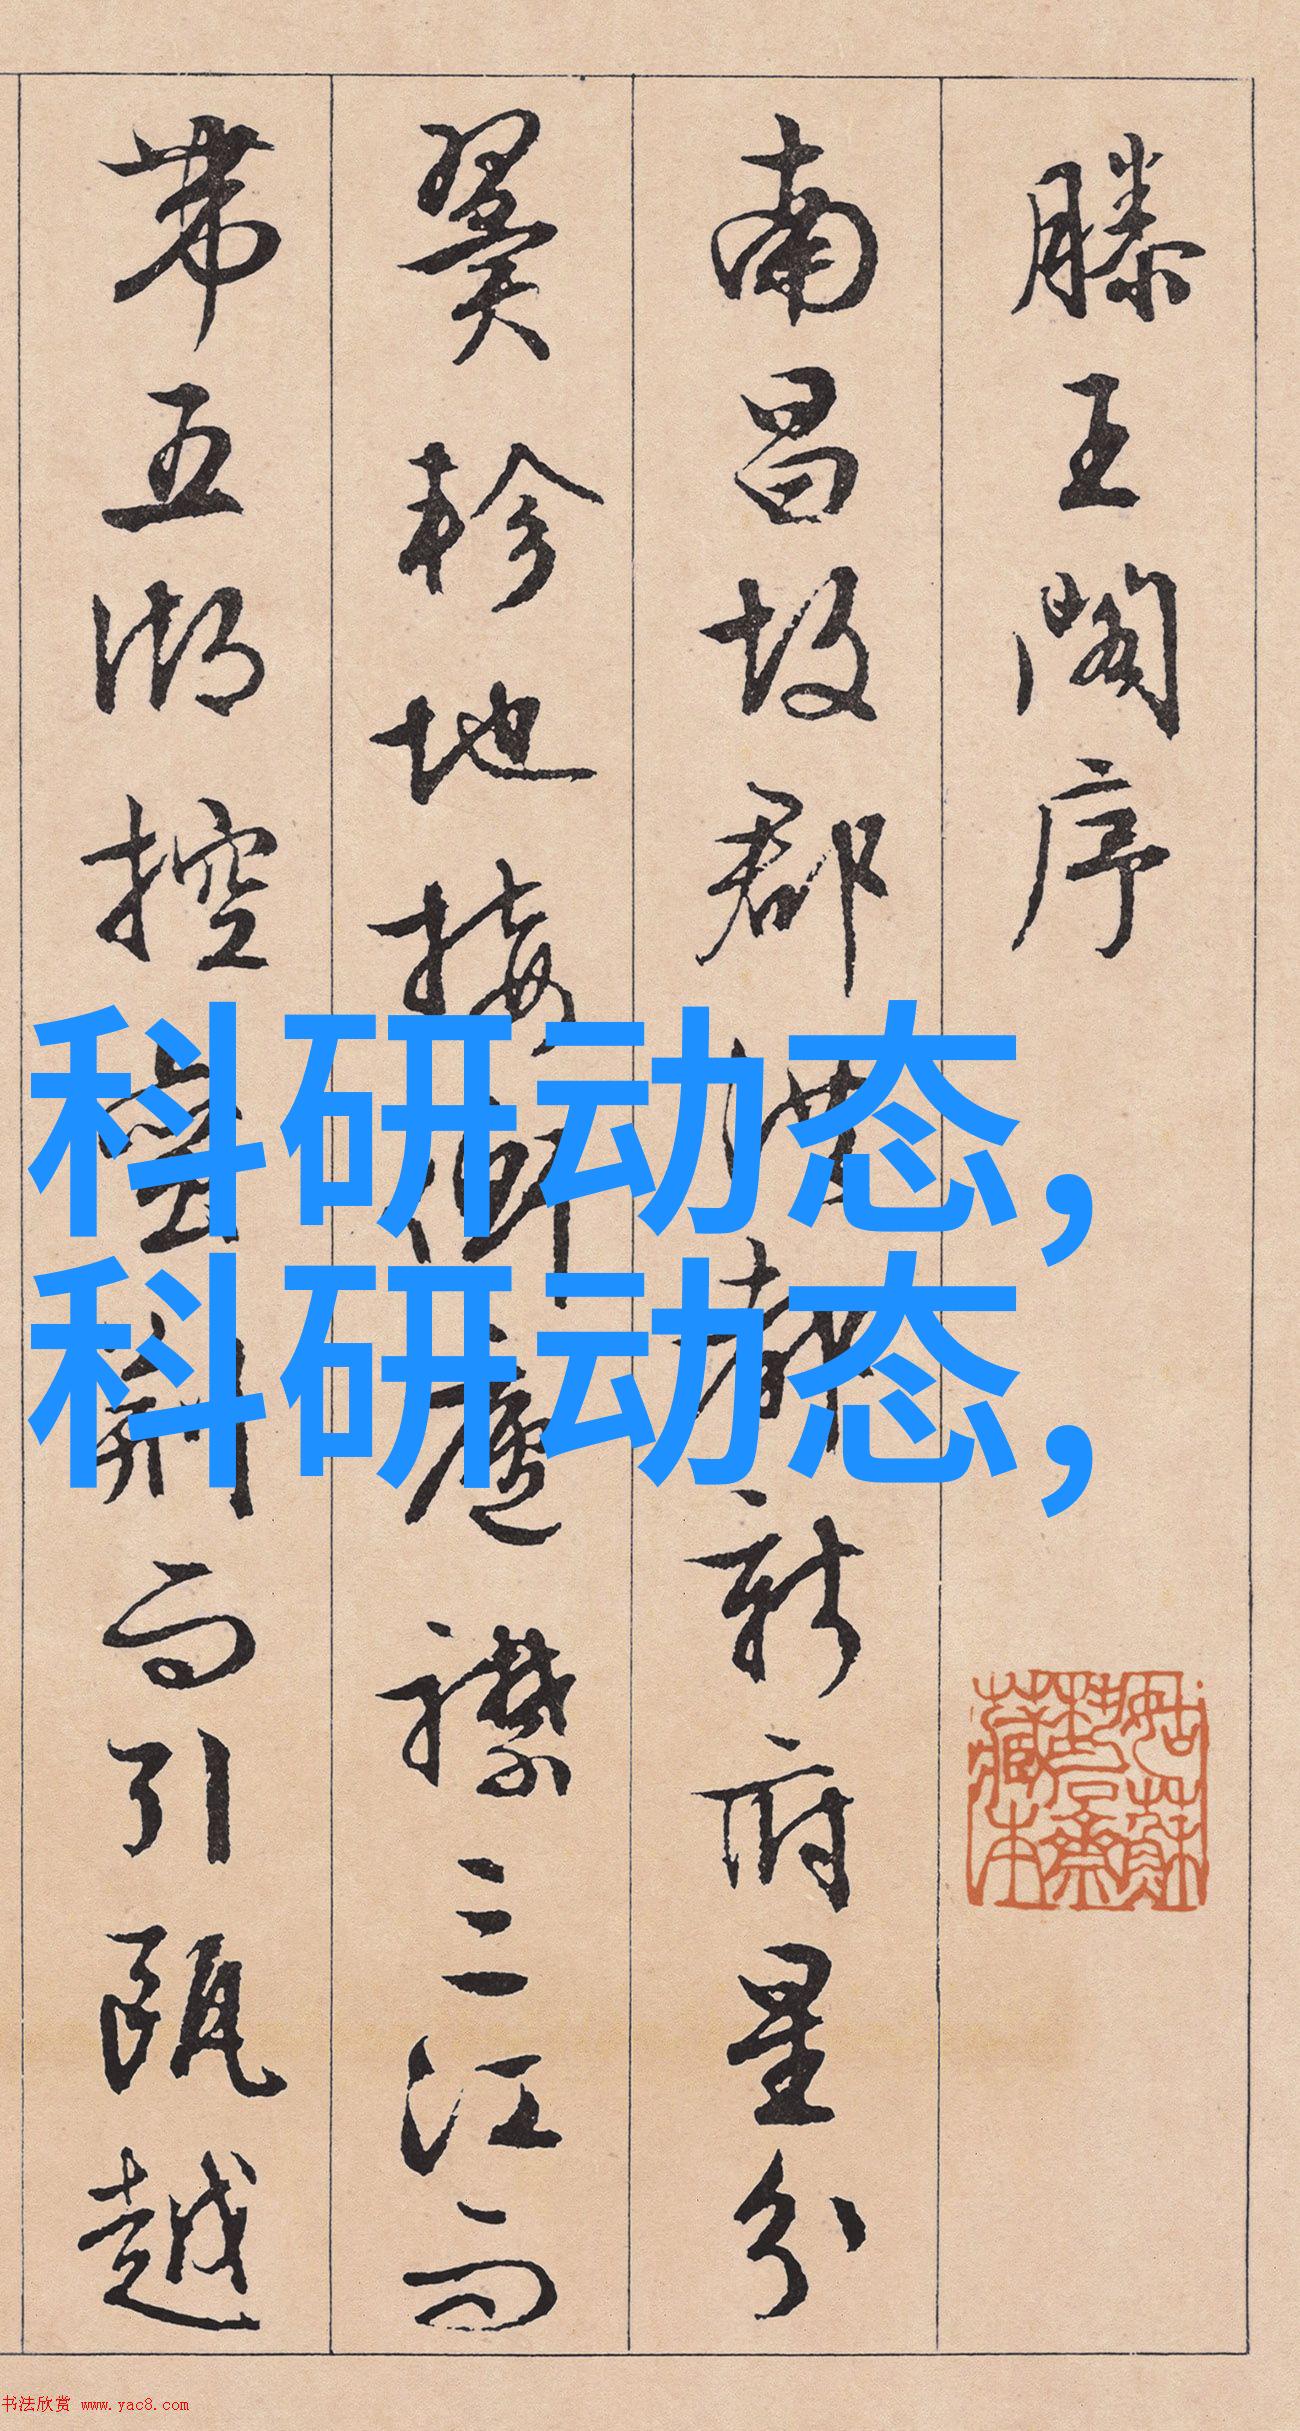 滕王阁序
南昌故郡洪都新府星分
翼轸地接衡庐襟三江而
带五湖控蛮荆而引瓯越
科研动态,
科研动态,
书法欣赏 www.yac8.com